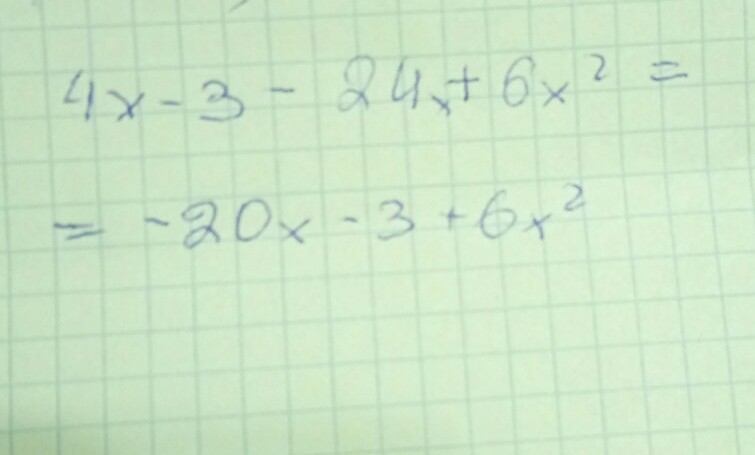 4x - 3 - 24x + 6x² =
= -20x - 3 + 6x²